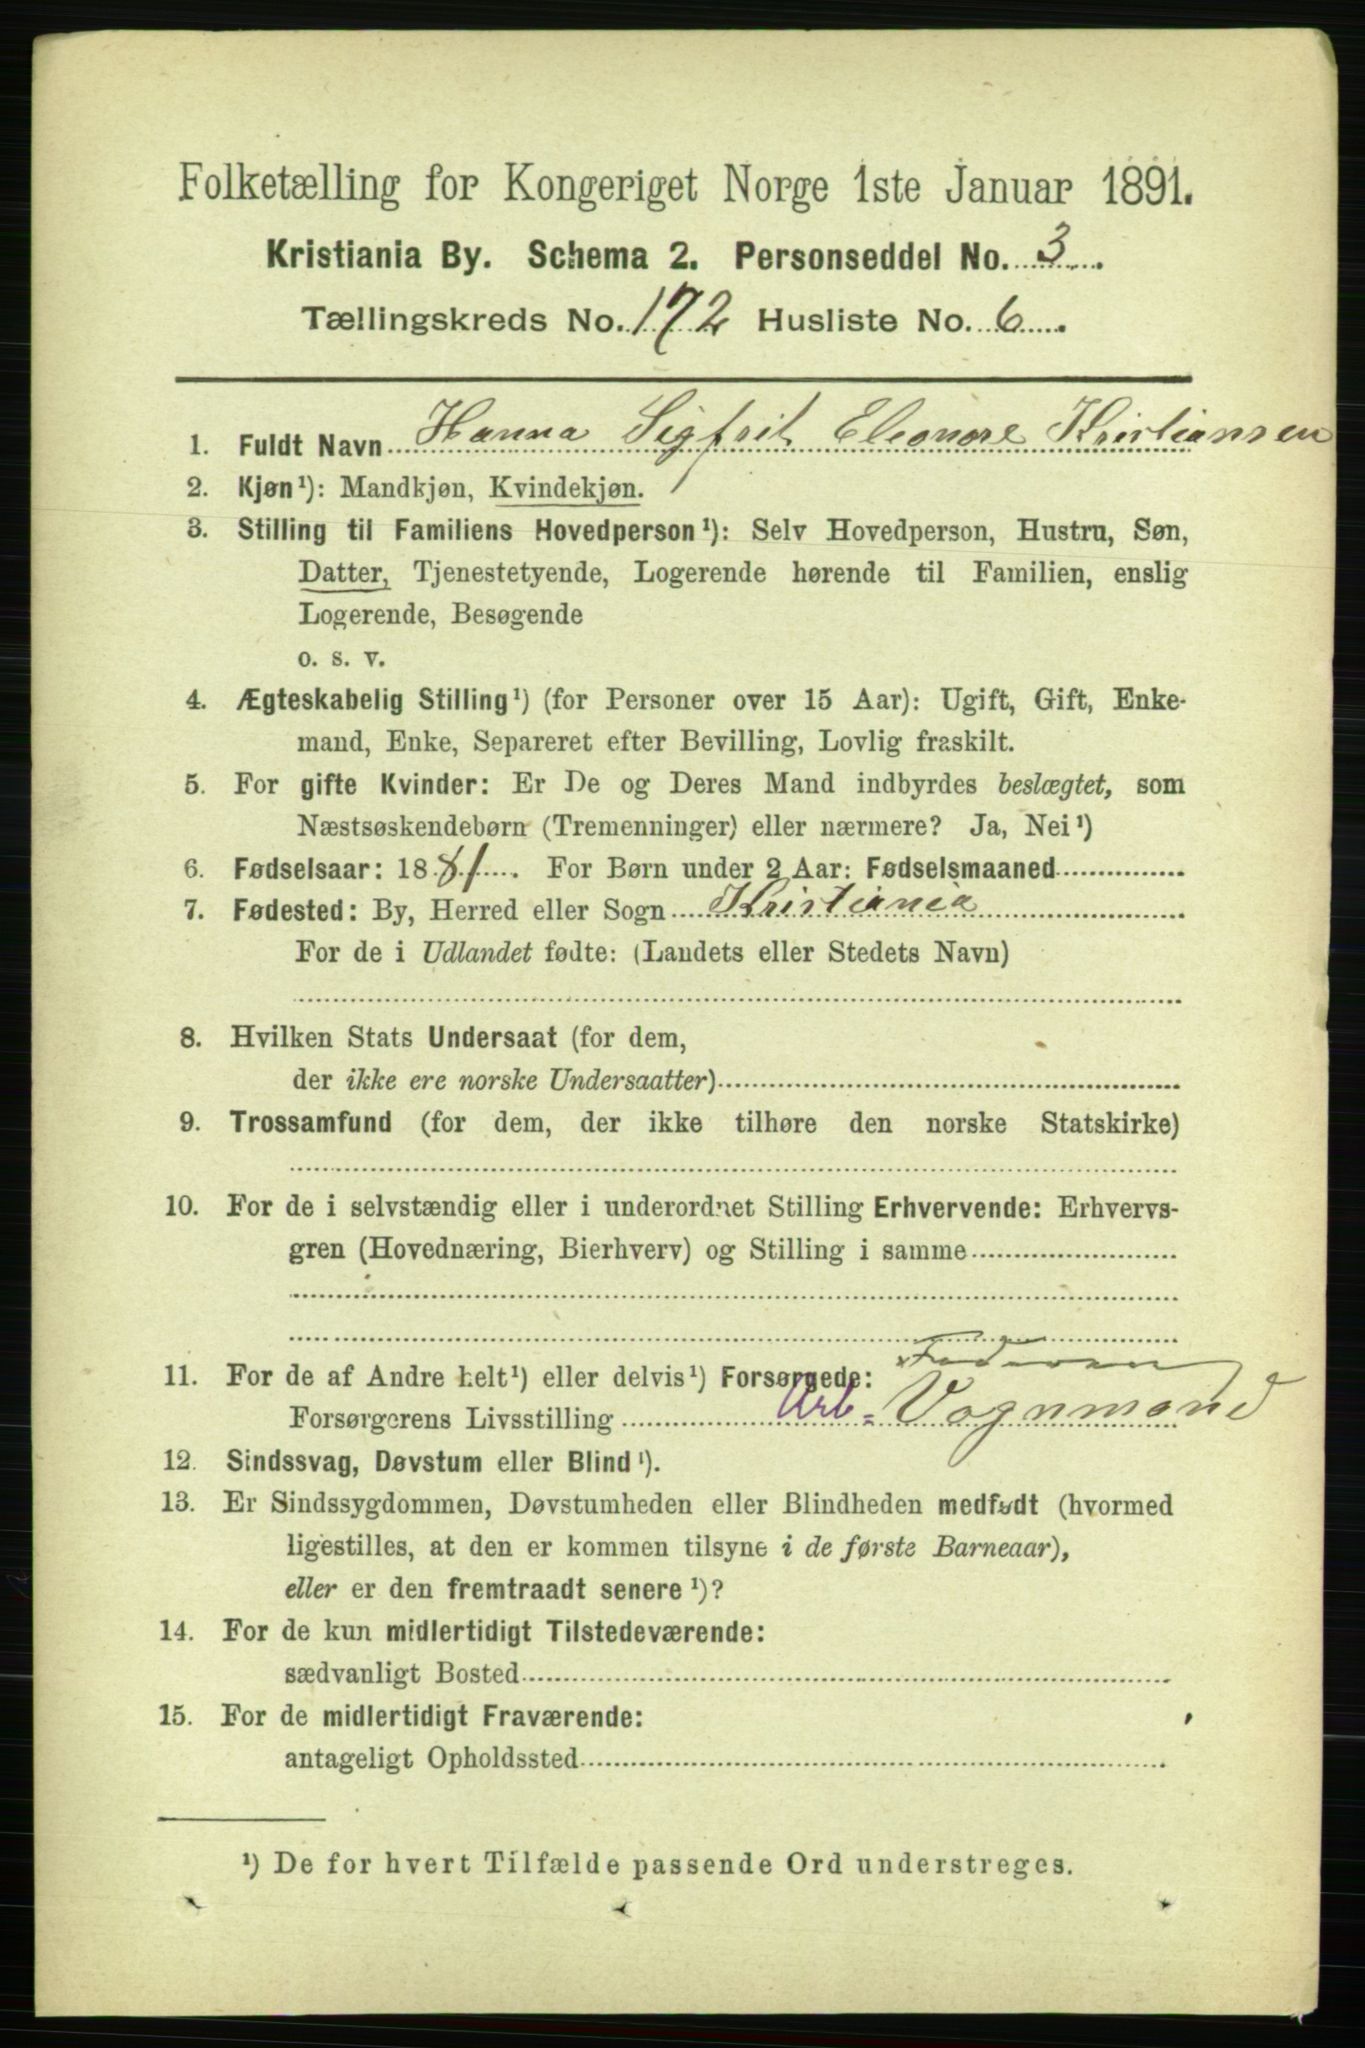 Folketælling for Kongeriget Norge 1ste Januar 1891.
Kristiania By. Schema 2. Personseddel No. 3
Tællingskreds No. 172 Husliste No. 6
1. Fuldt Navn Hanna Sigfrit Eleonore Kristiansen
2. Kjøn¹): Mandkjøn, Kvindekjøn.
3. Stilling til Familiens Hovedperson¹): Selv Hovedperson, Hustru, Søn,
Datter, Tjenestetyende, Logerende hørende til Familien, enslig
Logerende, Besøgende
o. s. v.
4. Ægteskabelig Stilling¹) (for Personer over 15 Aar): Ugift, Gift, Enke-
mand, Enke, Separeret efter Bevilling, Lovlig fraskilt.
5. For gifte Kvinder: Er De og Deres Mand indbyrdes beslægtet, som
Næstsøskendebørn (Tremenninger) eller nærmere? Ja, Nei¹)
6. Fødselsaar: 1881. For Børn under 2 Aar: Fødselsmaaned
7. Fødested: By, Herred eller Sogn Kristiania
For de i Udlandet fødte: (Landets eller Stedets Navn)
8. Hvilken Stats Undersaat (for dem,
der ikke ere norske Undersaatter)
9. Trossamfund (for dem, der ikke tilhøre den norske Statskirke)
10. For de i selvstændig eller i underordnet Stilling Erhvervende: Erhvervs-
gren (Hovednæring, Bierhverv) og Stilling i samme
11. For de af Andre helt¹) eller delvis¹) Forsørgede: Faderen
Forsørgerens Livsstilling Arb- Vognmand
12. Sindssvag, Døvstum eller Blind¹).
13. Er Sindssygdommen, Døvstumheden eller Blindheden medfødt (hvormed
ligestilles, at den er kommen tilsyne i de første Barneaar),
eller er den fremtraadt senere¹)?
14. For de kun midlertidigt Tilstedeværende:
sædvanligt Bosted
15. For de midlertidigt Fraværende:
antageligt Opholdssted
¹) De for hvert Tilfælde passende Ord understreges.